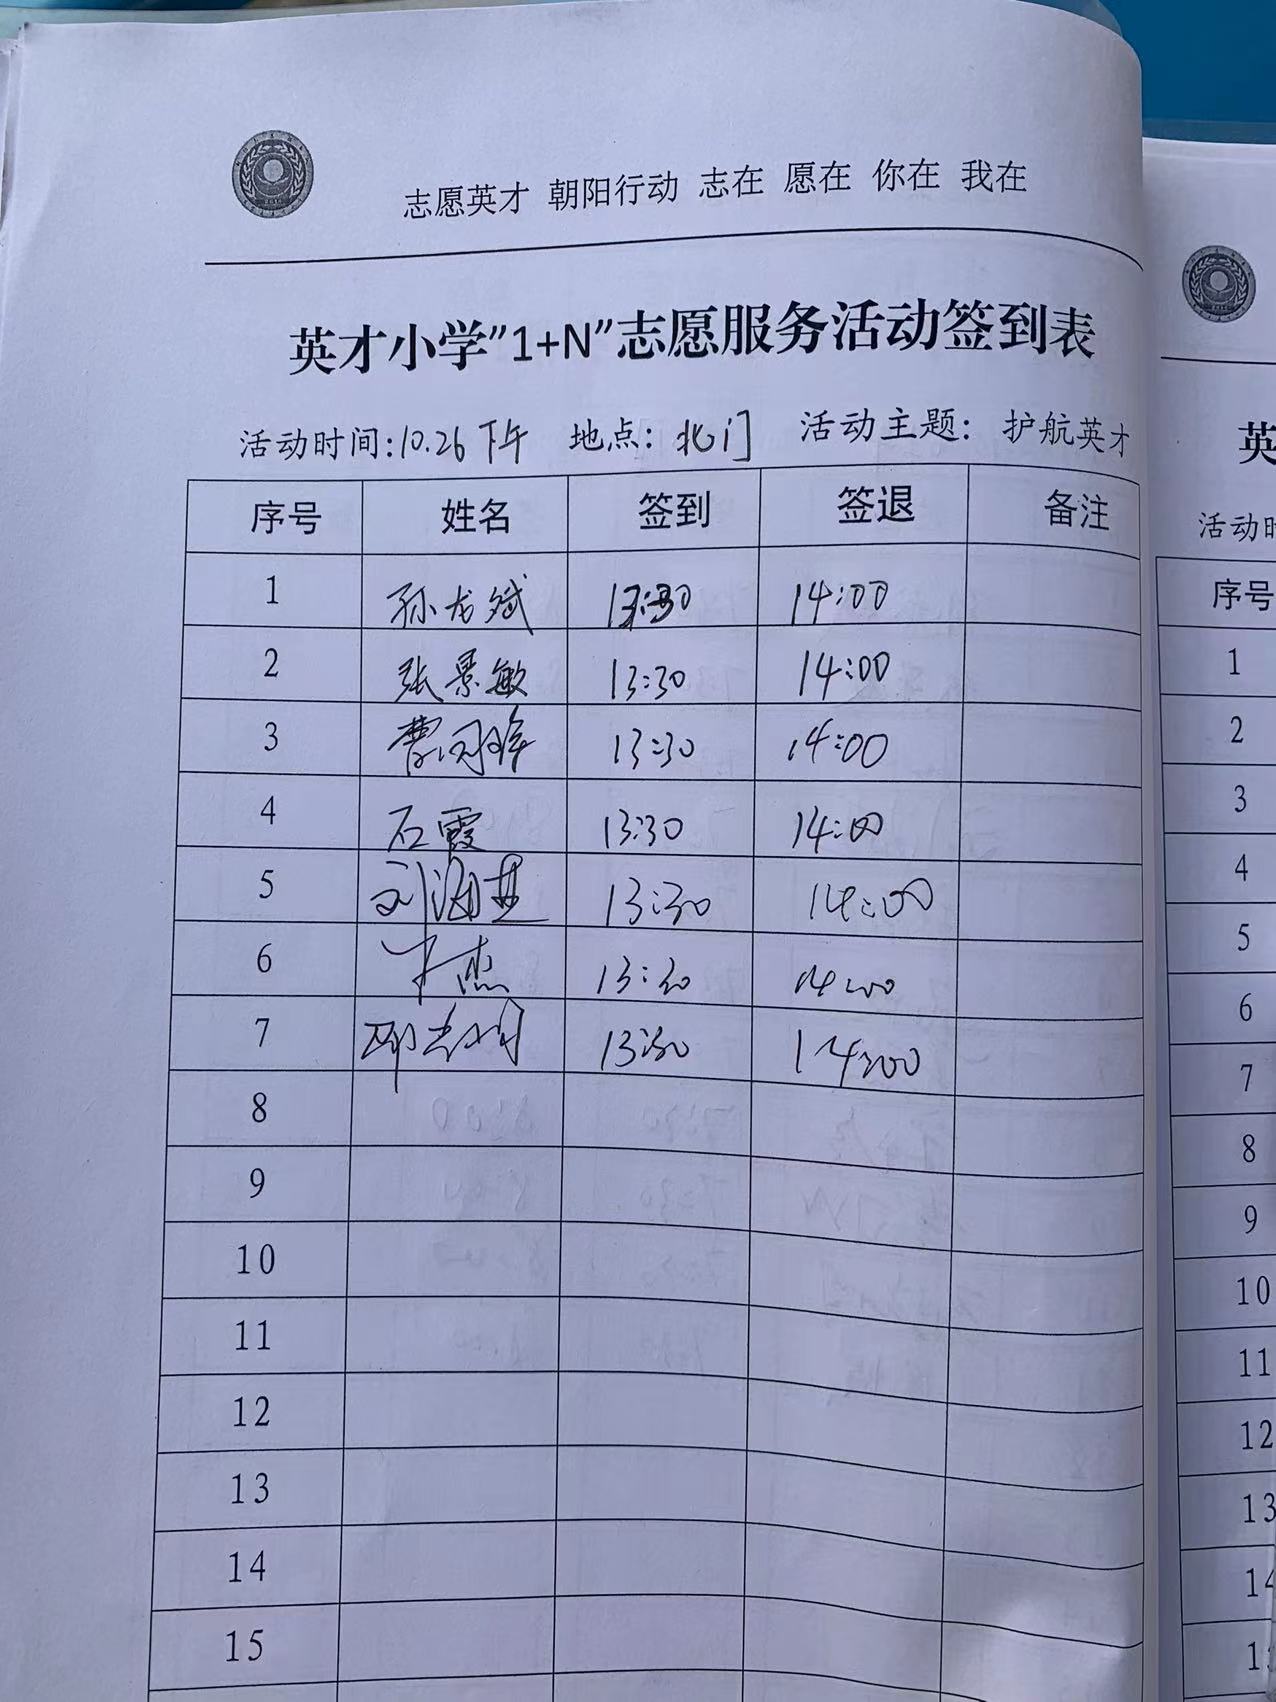 志愿英才 朝阳行动 志在 愿在 你在 我在
英才小学"1+N"志愿服务活动签到表
活动时间:10.26下午 地点: 北门 活动主题: 护航英才
序号 姓名 签到 签退 备注
1 孙龙斌 13:30 14:00
2 张景敏 13:30 14:00
3 曹 13:30 14:00
4 石霞 13:30 14:00
5 刘海燕 13:30 14:00
6 杰 13:30 14:00
7 13:30 14:00
8
9
10
11
12
13
14
15
英
活动时
序号
1
2
3
4
5
6
7
8
9
10
11
12
13
14